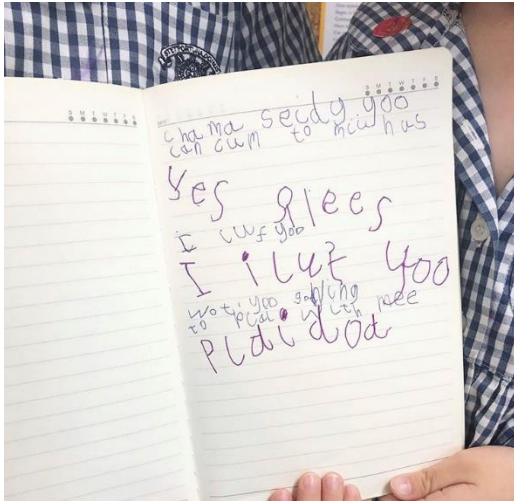 S M T W T F S
S M T W T F S
chama secdy yoo
can cum to miu hus
Yes Plees
I luf yoo
I iluf yoo
wot yoo
to plai with mee
Plaidod